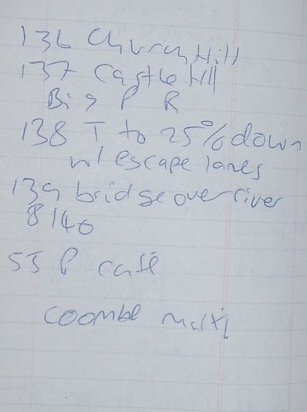 136 Church Hill
137 Castle Hill
Big P R
138 T to 25% down
w/ escape lanes
139 bridge over river
8140
53 P café
Coombe